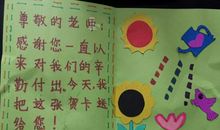 尊敬的老师:
感谢您一直以
来对我们的辛
勤付出,今天,我
把这张贺卡送
给您!